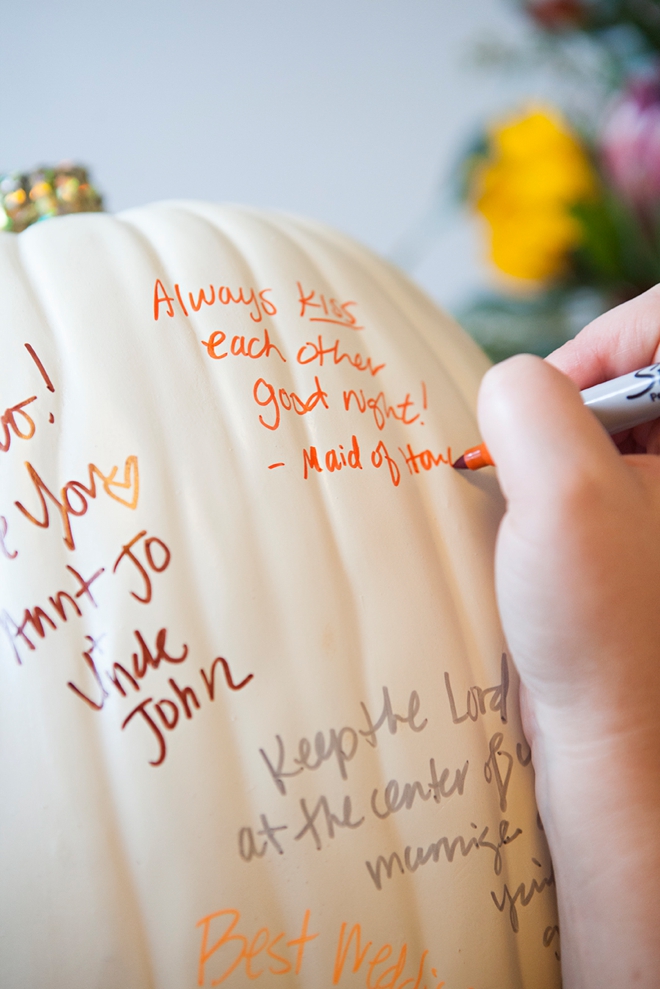 Always kiss
each other
good night!
- Maid of Hon
You
Annt Jo
+
Uncle
John
Keep the Lord
at the center of
marrige
Best Wedd